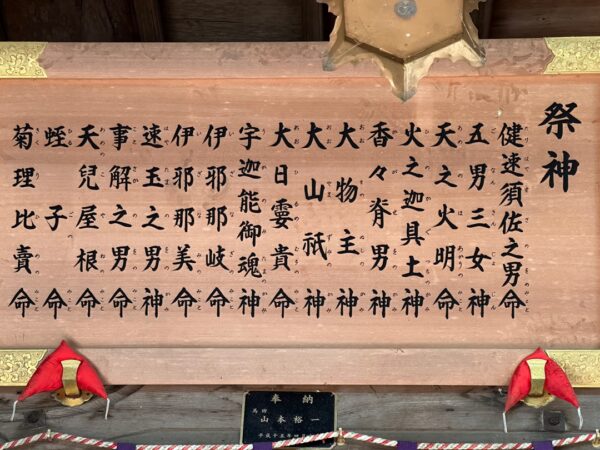 祭神
健速須佐之男命
五男三女神
天之火明命
火之迦具土神
香々脊男神
大物主神
大山祇神
大日孁貴命
宇迦能御魂神
伊邪那岐命
伊邪那美命
速玉之男神
事解之男命
天兒屋根命
蛭子命
菊理比賣命
奉納
山本裕一
平成十五年